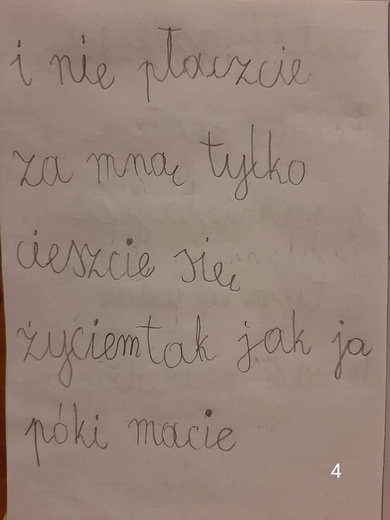 i nie płaczcie
za mną tylko
cieszcie się
życiemtak jak ja
póki macie
4